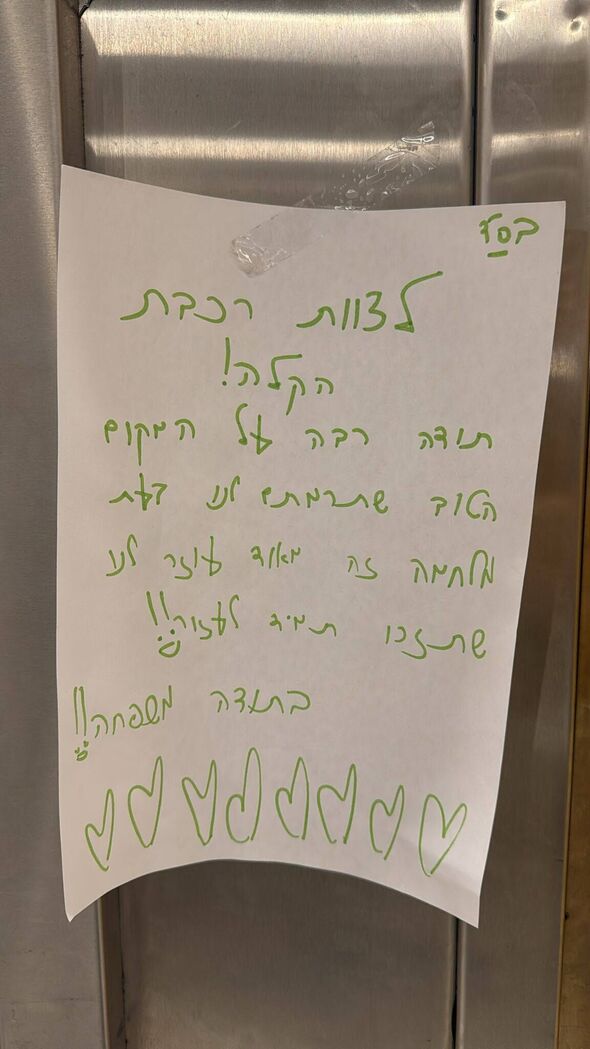 בסד
לצוות רכבת
הקלה!
תודה רבה על המקום
הטוב שתרמתם לנו בעת
מלחמה זה מאוד עוזר לנו
שתזכו תמיד לעזור!!
בתודה משפחה!!